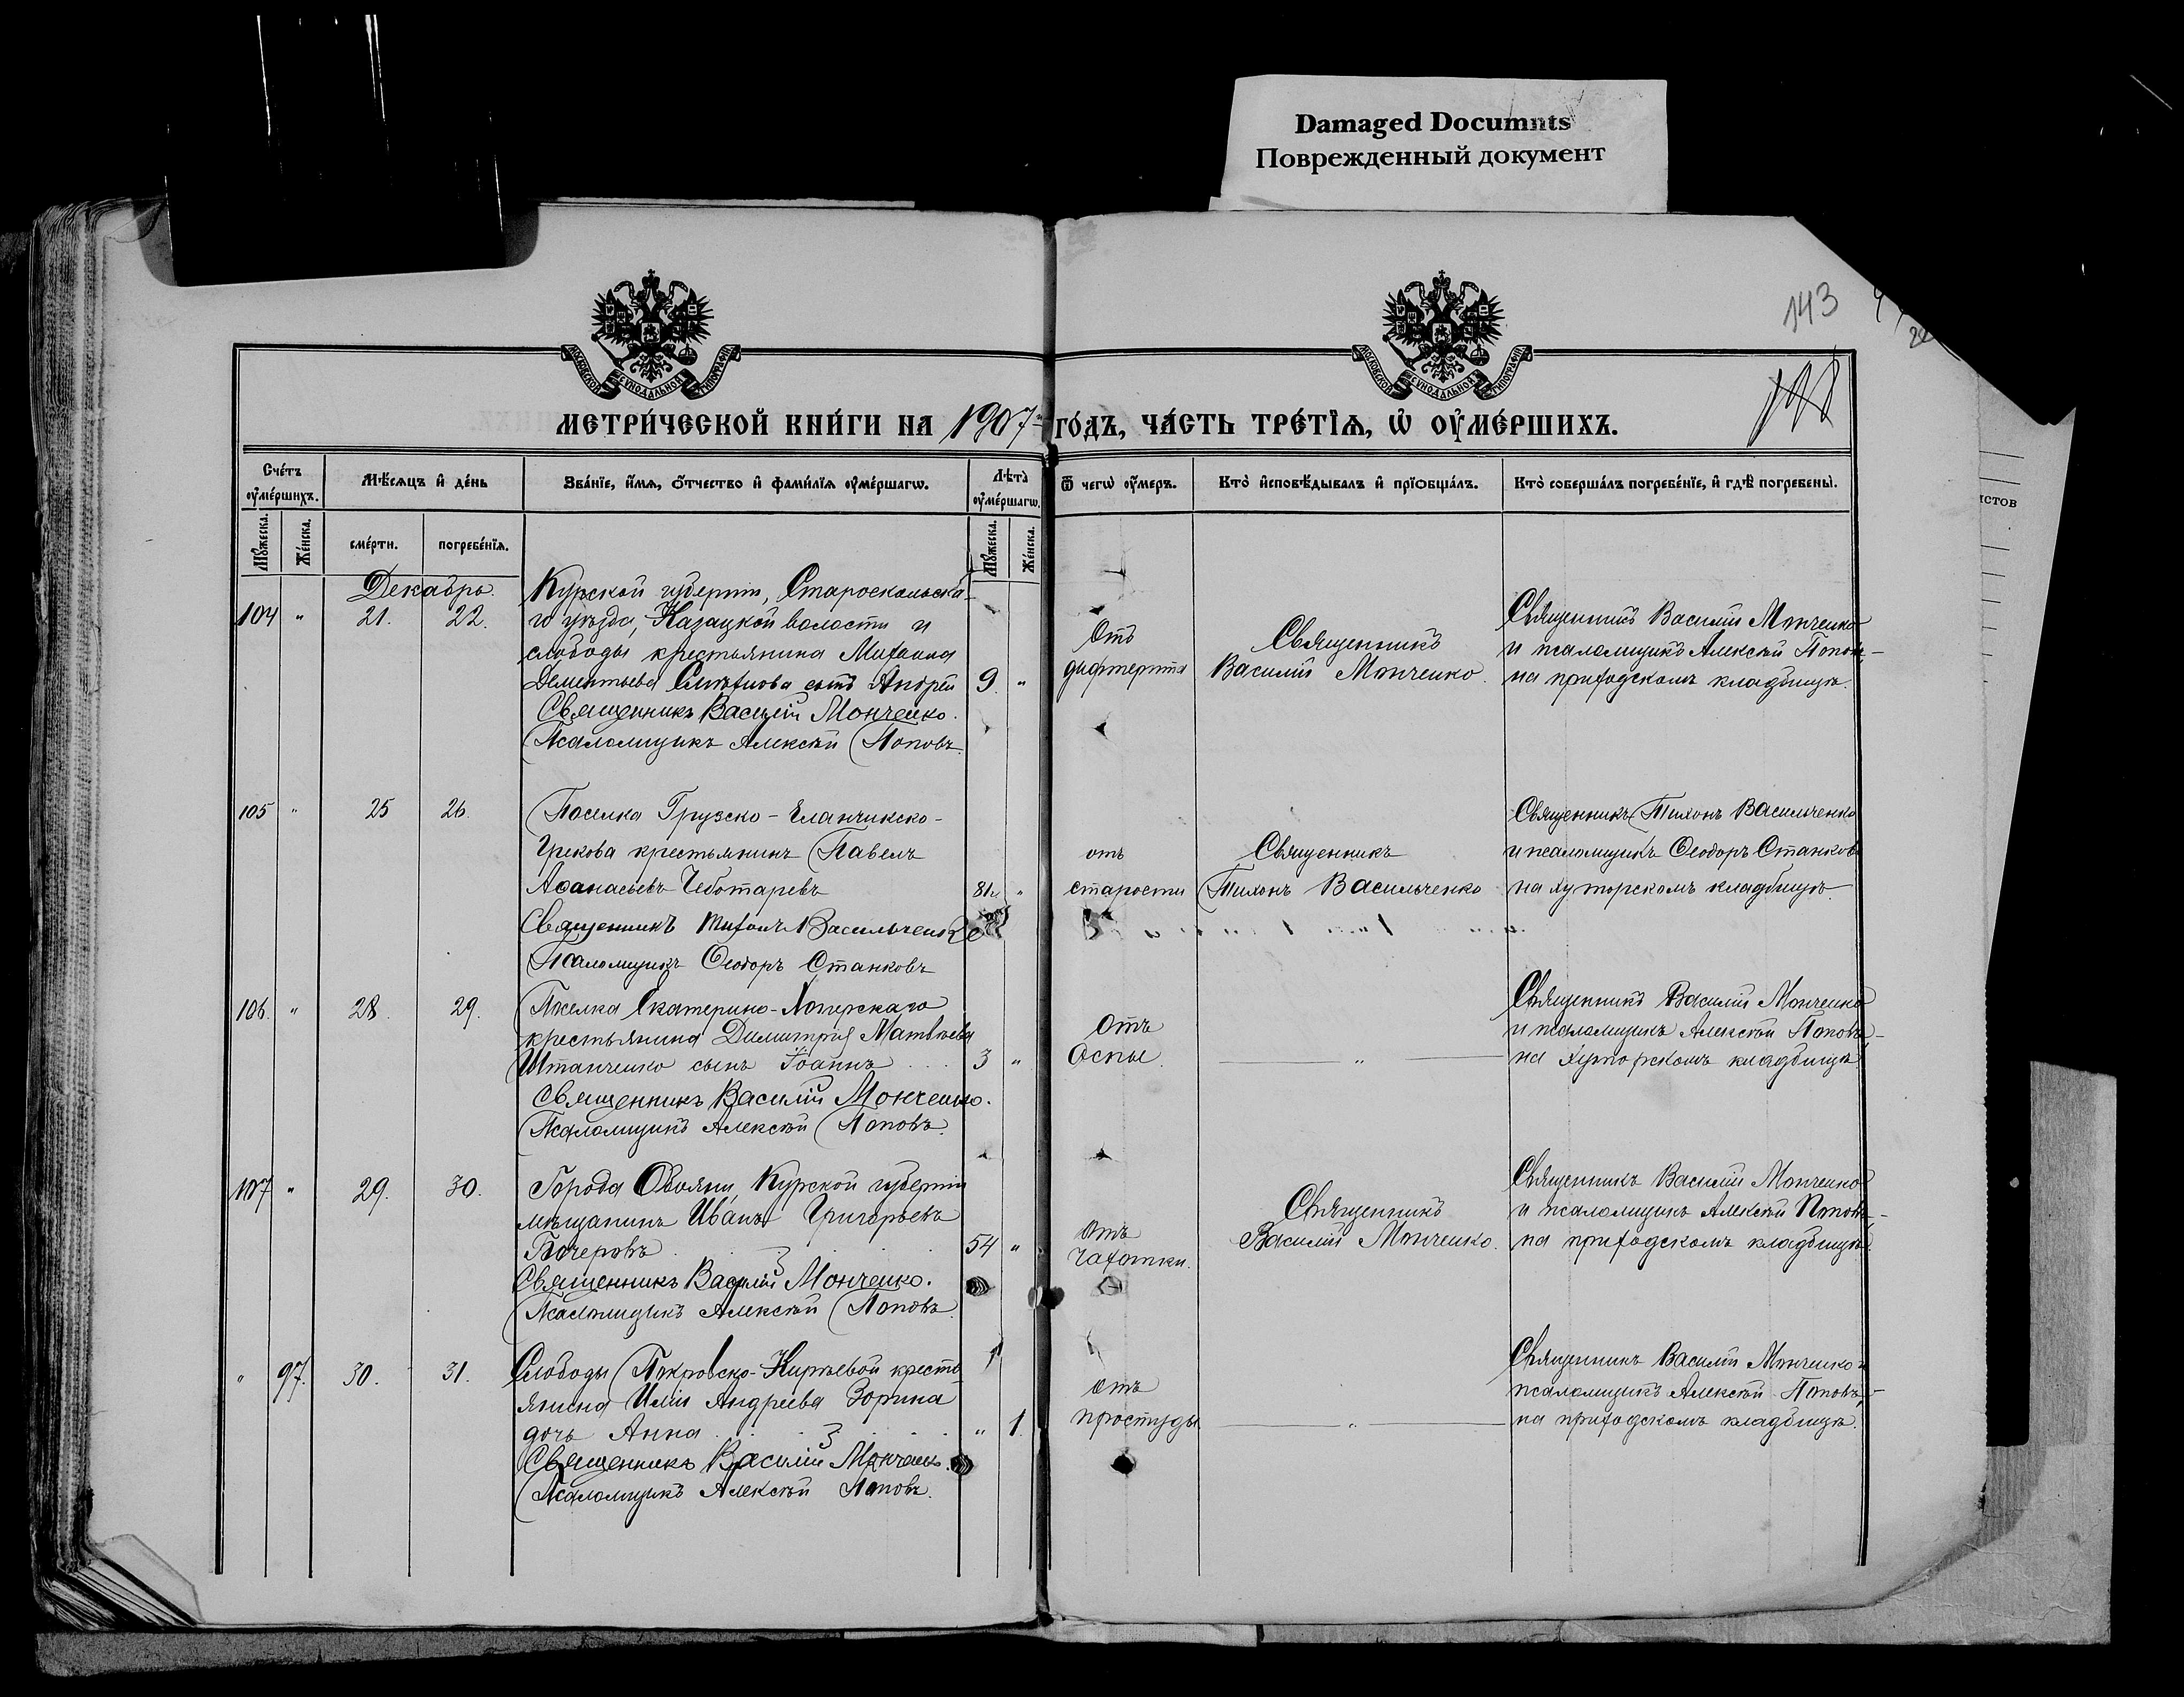 Damaged Documnts
Поврежденный документ
143
МОСКОВСКОЙ СУНОДАЛЬНОЙ ТИПОГРАФІИ
МОСКОВСКОЙ СУНОДАЛЬНОЙ ТИПОГРАФІИ
МЕТРИ́ЧЕСКОЙ КНИ́ГИ НА 1907 ГО́ДЪ, ЧА́СТЬ ТРЕ́ТІѦ, Ѡ҆ ОУ҆МЕ́РШИХЪ.
Сче́тъ оу҆ме́ршихъ.
Мѣ́сѧцъ и҆ де́нь
Зва́нїе, и҆́мѧ, ѻ҆́тчество и҆ фами́лїѧ оу҆ме́ршагѡ.
Лѣ̑та оу҆ме́ршагѡ.
Ѿ чегѡ̀ оу҆́меръ.
Кто̀ и҆сповѣ́дывалъ и҆ прїѻбща́лъ.
Кто̀ соверша́лъ погребе́нїе, и҆ гдѣ̀ погребены̀.
Мꙋ́жеска.
Же́нска.
сме́рти.
погребе́нїѧ.
Мꙋ́жеска.
Же́нска.
истов
Декабрь
104 " 21. 22.
Курской губерніи, Староскольска-
го уѣзда, Казацкой волости и
слободы крестьянина Михаила
Дементьева сынъ Андрей 9. "
Священникъ Василій Мончеико.
Псаломщикъ Алексѣй Поповъ.
Отъ
дифтерита
Священникъ
Василій Мончеико.
Священникъ Василій Мончеико
и псаломщикъ Алексѣй Поповъ,-
на приходскомъ кладбищѣ.
105 " 25 26.
Поселка Грузско-Еланчикско-
Грекова крестьянинъ Павелъ
Аѳанасьевъ Чеботаревъ 81 "
Священникъ Тихонъ Васильченко
Псаломщикъ Ѳеодоръ Станковъ
отъ
старости
Священникъ
Тихонъ Васильченко
Священникъ Тихонъ Васильченко
и псаломщикъ Ѳеодоръ Станковъ
на хуторскомъ кладбищѣ.
106. " 28. 29.
Поселка Екатерино-Хоперскаго
крестьянина Димитрія Матвѣева
Штанченко сынъ Іоаннъ 3 "
Священникъ Василій Мончеико.
Псаломщикъ Алексѣй Поповъ.
Отъ
Оспы.
"
Священникъ Василій Мончеико
и псаломщикъ Алексѣй Поповъ,-
на хуторскомъ кладбищѣ
107 " 29. 30.
Города Обояни, Курской губерніи
мѣщанинъ Иванъ Григорьевъ
Бочеровъ 54 "
Священникъ Василій Мончеико.
Псаломщикъ Алексѣй Поповъ.
Отъ
чахотки.
Священникъ
Василій Мончеико.
Священникъ Василій Мончеико
и псаломщикъ Алексѣй Поповъ,-
на приходскомъ кладбищѣ.
" 97. 30. 31.
Слободы Покровско-Кирѣевой кресть-
янина Иліи Андреева Зорина
дочь Анна " 1.
Священникъ Василій Мончеико.
Псаломщикъ Алексѣй Поповъ.
Отъ
простуды
"
Священникъ Василій Мончеико и
псаломщикъ Алексѣй Поповъ,-
на приходскомъ кладбищѣ.